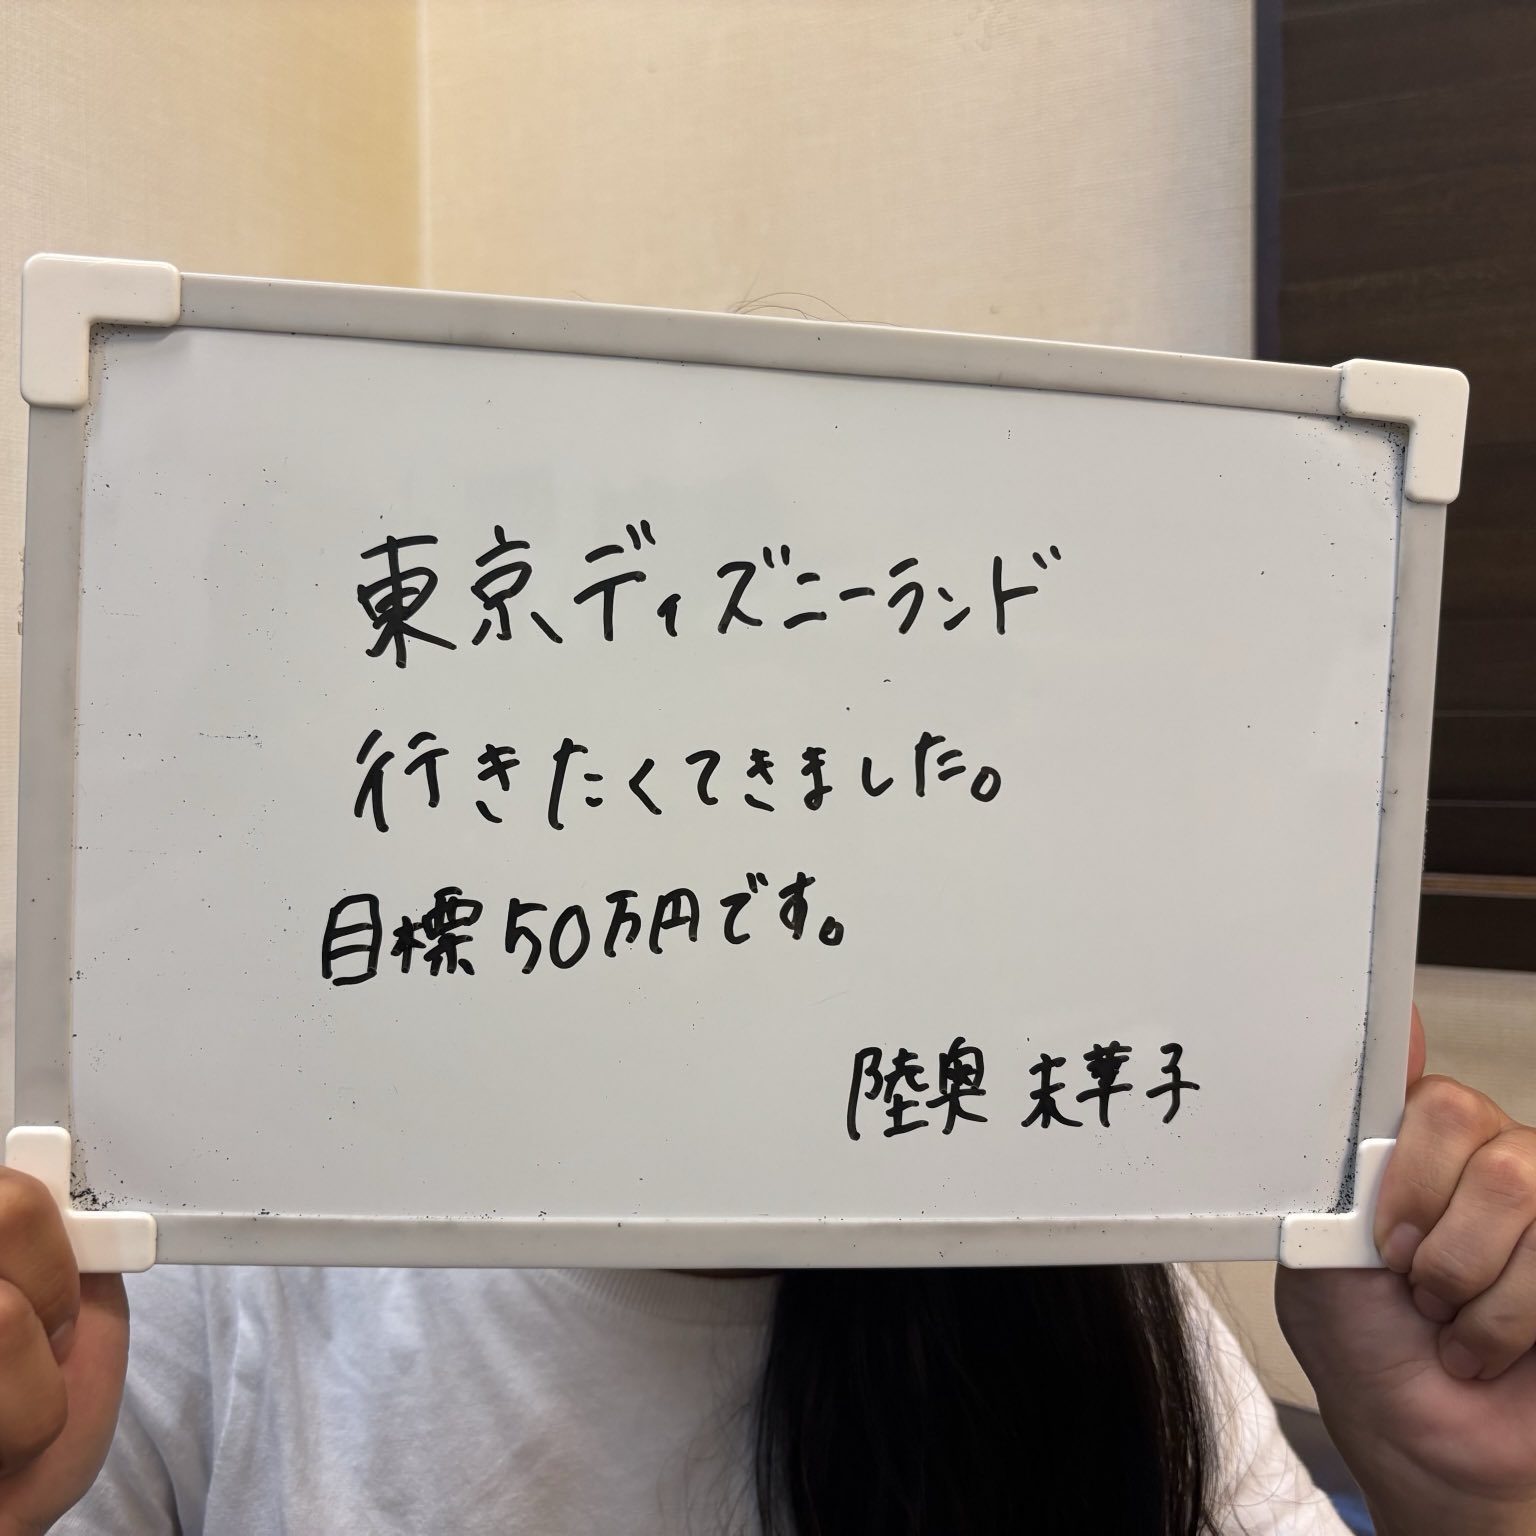 東京ディズニーランド
行きたくてきました。
目標50万円です。
陸奥 末華子